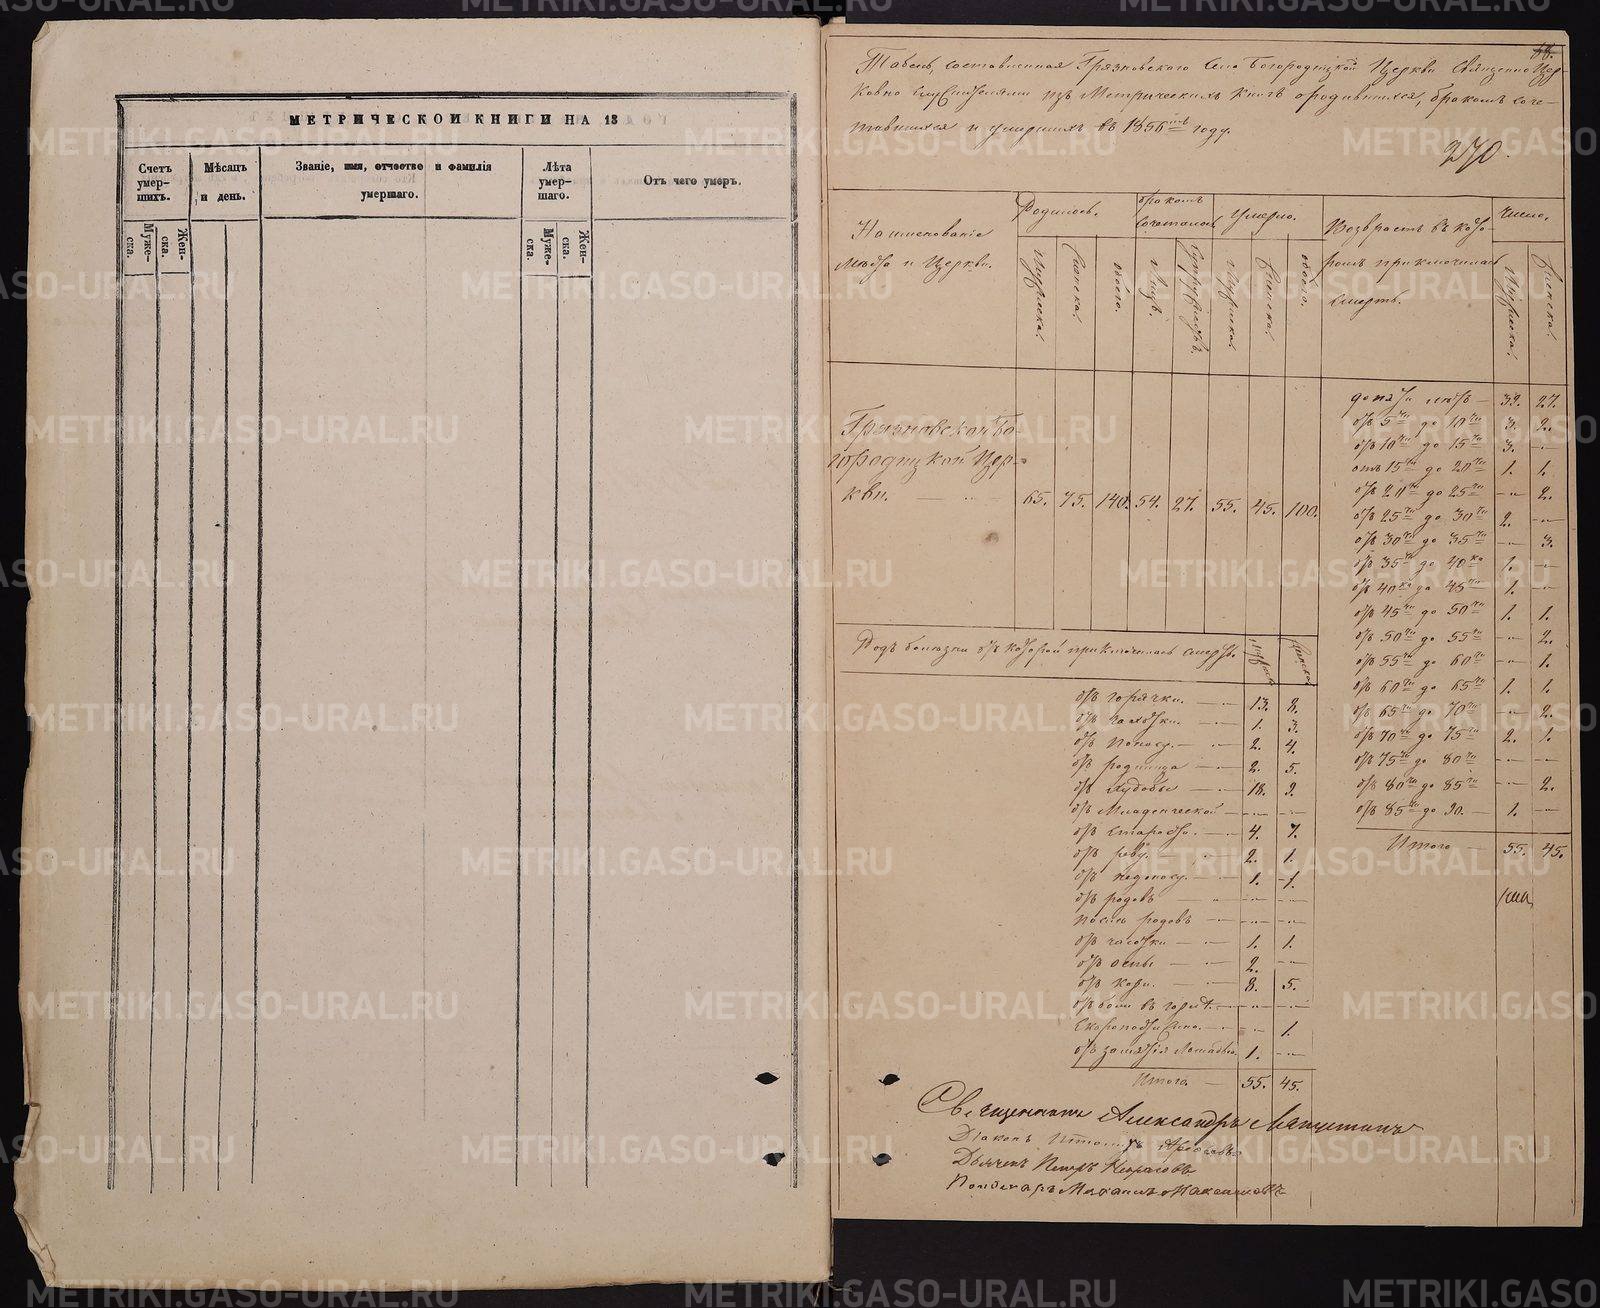 МЕТРИЧЕСКОЙ КНИГИ НА 18
Счетъ умер-шихъ.
Мѣсяцъ и день.
Званіе, имя, отчество и фамилія умершаго.
Лѣта умер-шаго.
Отъ чего умеръ.
Муже-ска.
Жен-ска.
Муже-ска.
Жен-ска.
Табель, составленная Грязновскаго Села Богородицкой Церкви Священно Цер-
ковно служителями изъ Метрическихъ книгъ о родившихся, бракомъ соче-
тавшихся и умершихъ въ 1856мъ году.
270.
Наименованіе
мѣста и Церкви.
Родилось.
бракомъ
сочеталось
Умерло.
Возврастъ въ кото-
ромъ приключилась
смерть.
число.
Мужеска.
Женска.
обоего.
Лицъ.
Супружествъ.
Мужеска.
Женска.
обоего.
Мужеска.
Женска.
Грязновской Бо-
городицкой Цер-
кви. 65. 75. 140. 54. 27. 55. 45. 100.
до пяти лѣтъ — 39. 27.
отъ 5ти до 10ти 3. 2.
отъ 10ти до 15ти 3. —
отъ 15ти до 20ти 1. 1.
отъ 20ти до 25ти — 2.
отъ 25ти до 30ти 2. —
отъ 30ти до 35ти — 3.
отъ 35ти до 40ка 1. —
отъ 40ка до 45ти 1. —
отъ 45ти до 50ти 1. 1.
отъ 50ти до 55ти — 2.
отъ 55ти до 60ти — 1.
отъ 60ти до 65ти 1. 1.
отъ 65ти до 70ти — 2.
отъ 70ти до 75ти 2. 1.
отъ 75ти до 80ти — —
отъ 80ти до 85ти — 2.
отъ 85ти до 90. — 1. —
Итого — 55. 45.
Родъ болѣзни отъ которой приключилась смерть.
Мужеска
Женска
отъ горячки. — 13. 8.
отъ чахотки. — 1. 3.
отъ поносу. — 2. 4.
отъ родимца — 2. 5.
отъ худобы — 18. 9.
отъ Младенческой — — —
отъ старости. — 4. 7.
отъ реву. — 2. 1.
отъ недоноску. — 1. 1.
отъ родовъ — — —
послѣ родовъ — — —
отъ чесотки — 1. 1.
отъ оспы — 2. —
отъ кори. — 8. 5.
отъ боли въ горлѣ. — — —
Скоропостижно. — — 1.
отъ Лошадью. 1. —
Итого. — 55. 45.
Священникъ Александръ
Діаконъ
Дьячекъ Петръ Некрасовъ
Пономарь Михаилъ
METRIKI.GASO-URAL.RU